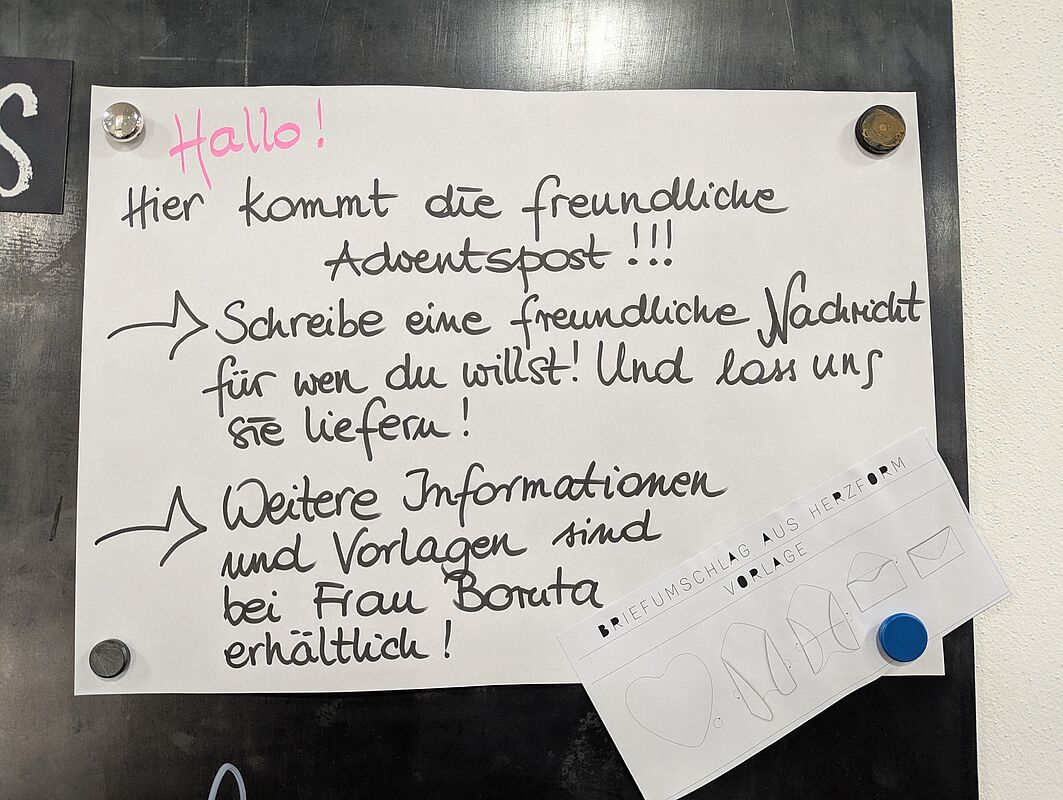 S
Hallo!
Hier kommt die freundliche
Adventspost !!!
Schreibe eine freundliche Nachricht
für wen du willst! Und lass uns
sie liefern!
Weitere Informationen
und Vorlagen sind
bei Frau Boruta
erhältlich!
BRIEFUMSCHLAG AUS HERZFORM
VORLAGE